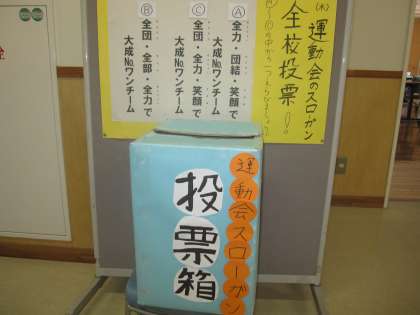 (木) 運動会のスローガン
全校投票!!
Ⓐ全力・団結・笑顔で
大成No.ワンチーム
Ⓒ全団・全力・笑顔で
大成No.ワンチーム
Ⓑ全団・全部・全力で
大成No.ワンチーム
運動会スローガン
投票箱